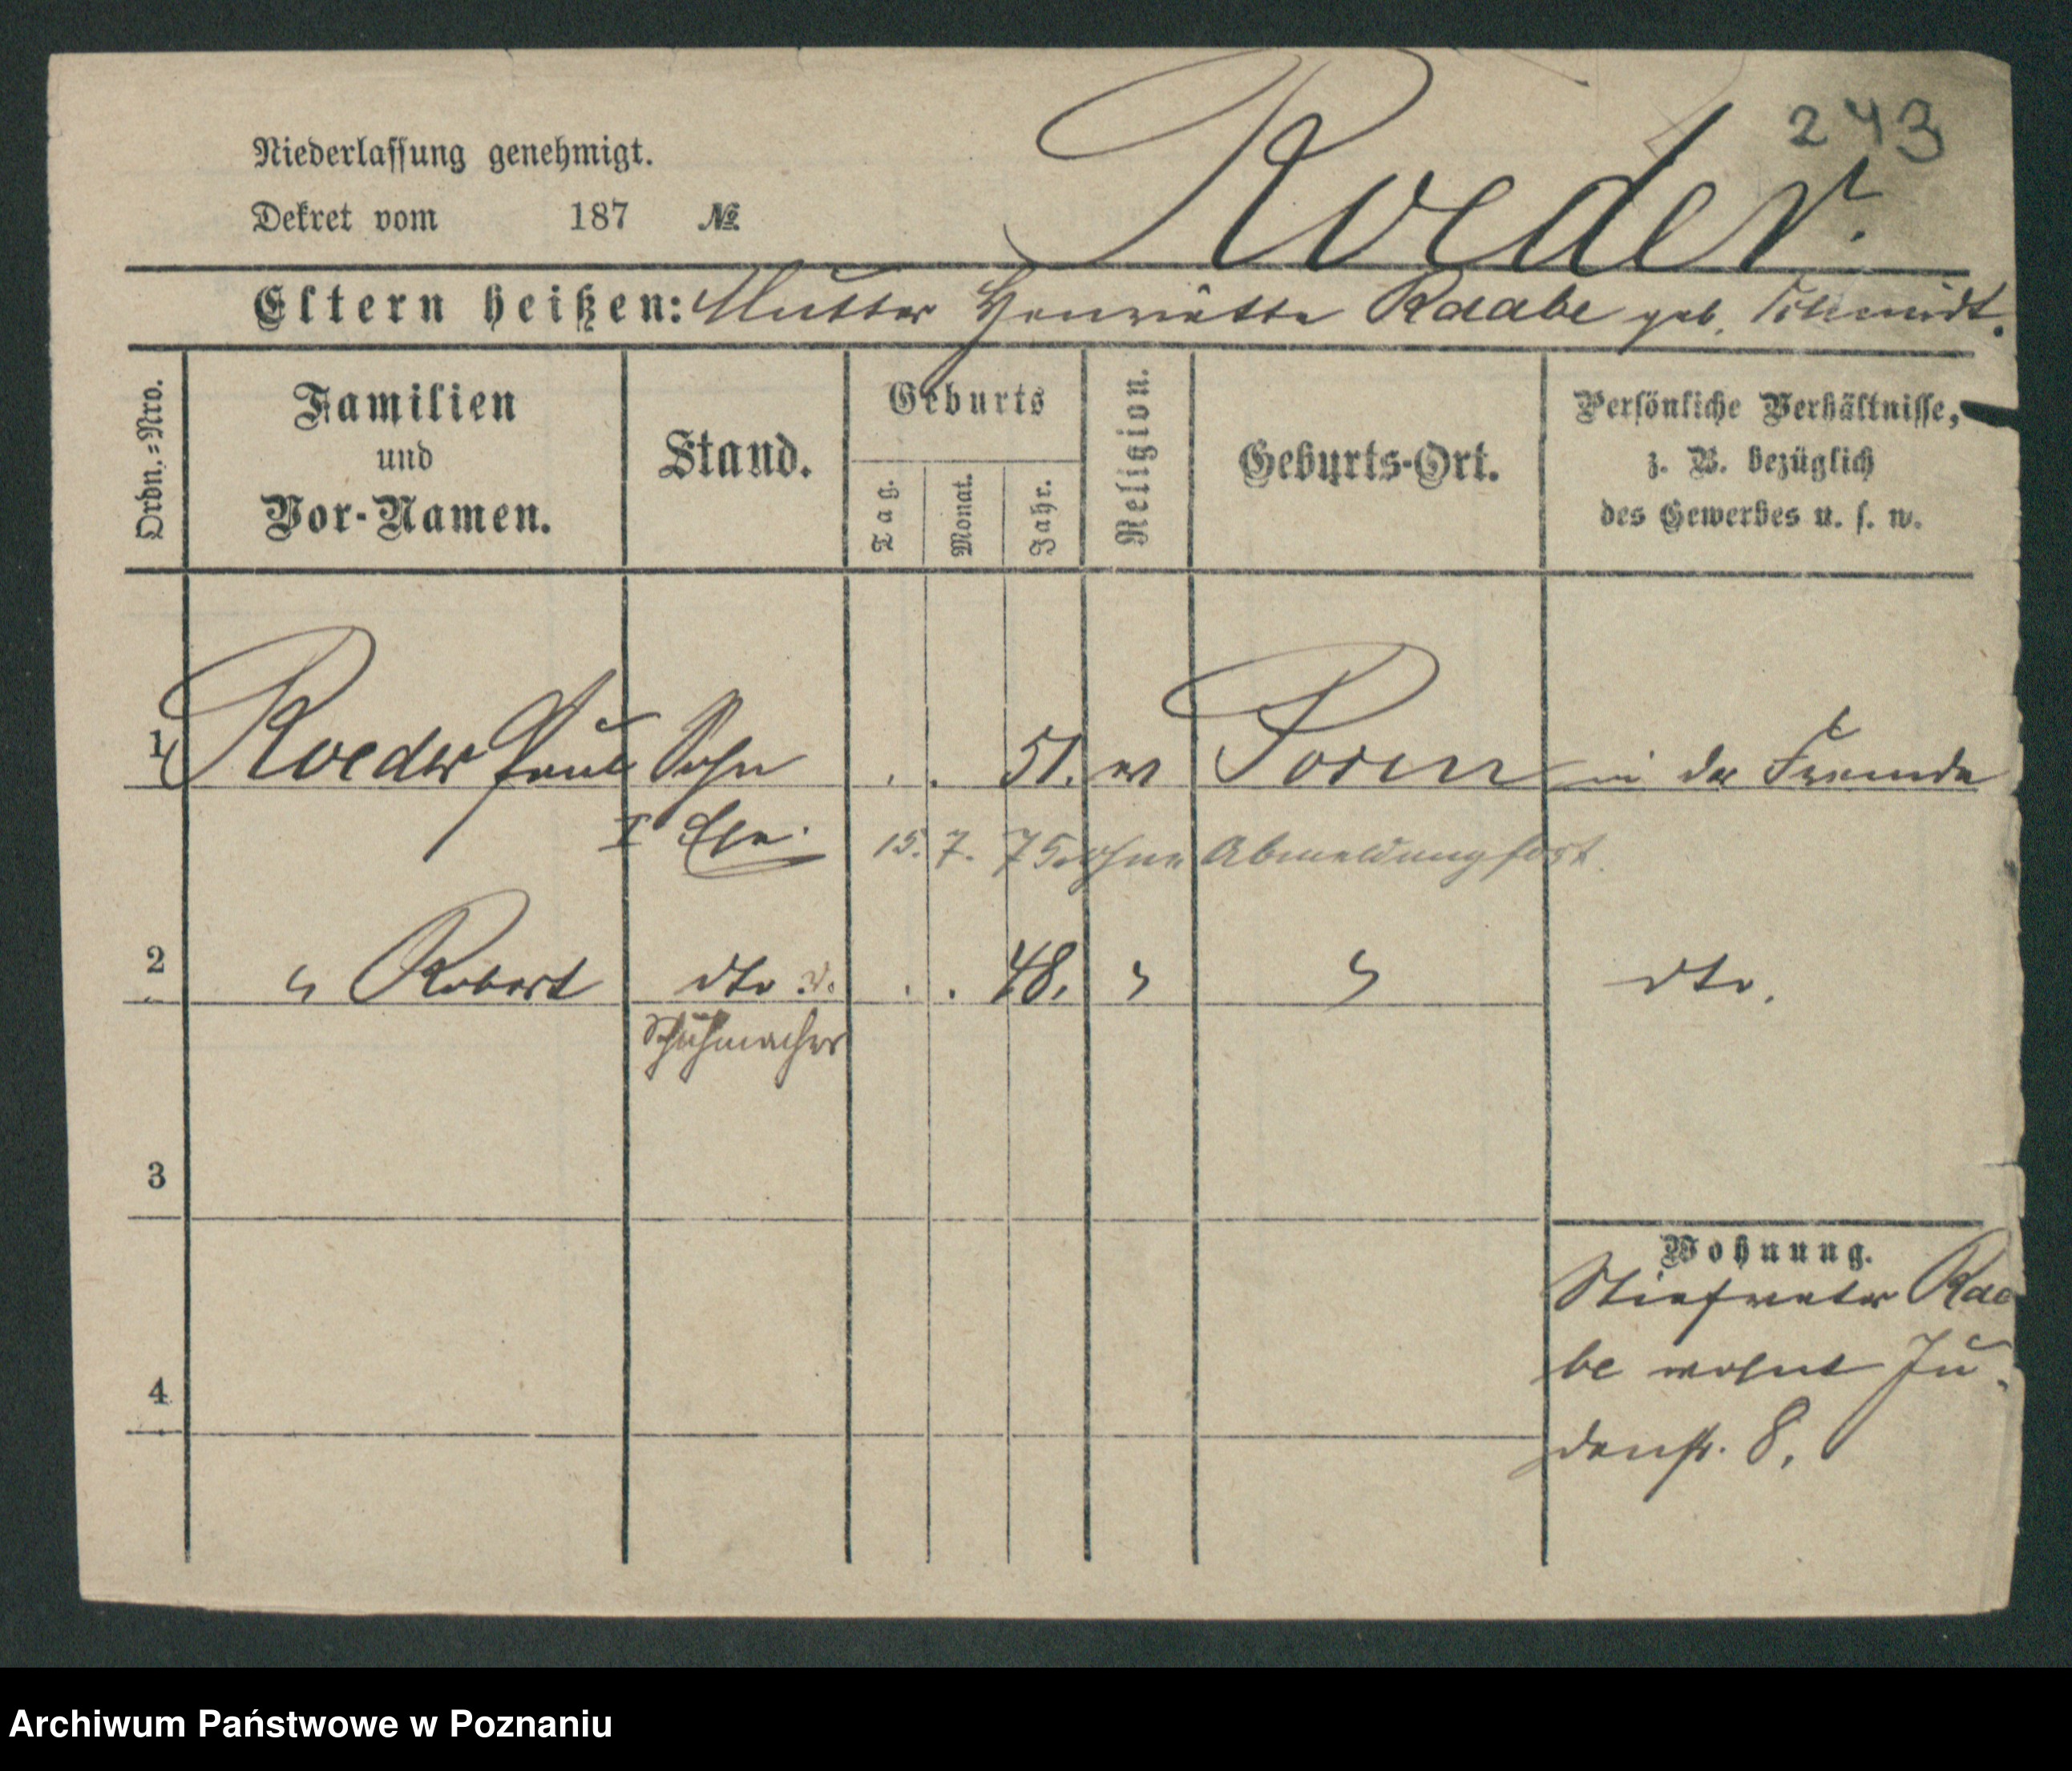 243
Roeder.
Niederlassung genehmigt.
Dekret vom 187 №
Eltern heißen: Mutter Henriette Raabe geb. Schmidt.
Ordn.=Nro.
Familien
und
Vor-Namen.
Stand.
Geburts
Tag.
Monat.
Jahr.
Religion.
Geburts-Ort.
Persönliche Verhältnisse,
z. B. bezüglich
des Gewerbes u. s. w.
1 Roeder Paul Sohn . . 51. ev Posen in der Fremde
I Ehe. 15. 7. 75. ohne Abmeldung fort.
2 " Robert dto . . 48. " " dto.
Schuhmacher
3
Wohnung.
Stiefvater Raa
be wohnt Ju-
4
denstr. 8.
Archiwum Państwowe w Poznaniu